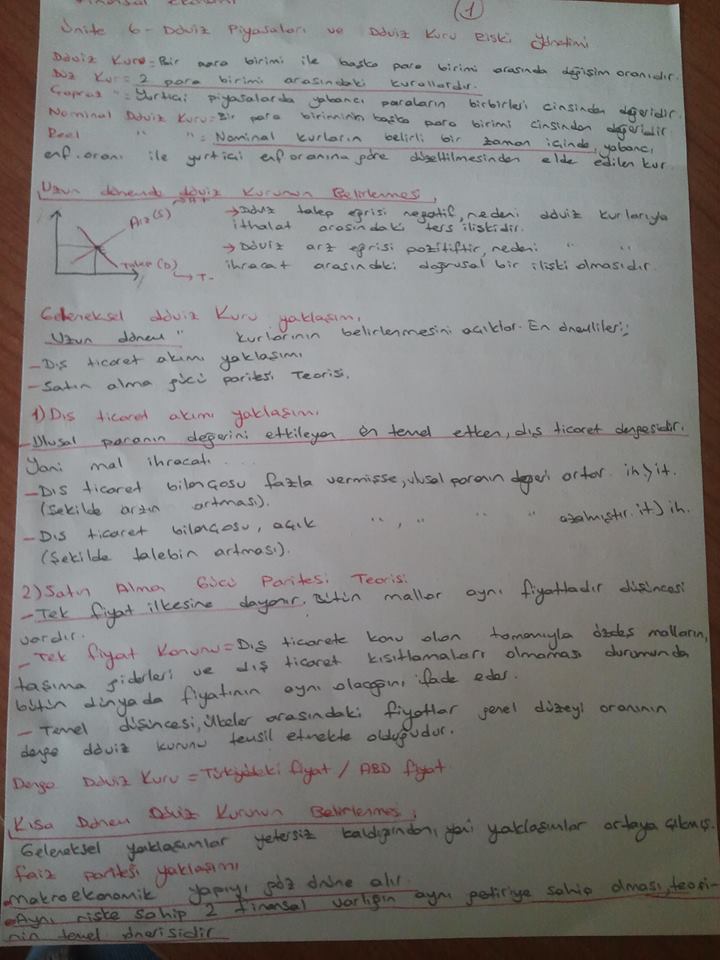 Finansal Ekonomi
1
Ünite 6 - Döviz Piyasaları ve Döviz Kuru Riski Yönetimi
Döviz Kuru = Bir para birimi ile başka para birimi arasında değişim oranıdır.
Düz Kur = 2 para birimi arasındaki kurallardır.
Çapraz " = Yurtiçi piyasalarda yabancı paraların birbirleri cinsinden değeridir.
Nominal Döviz Kuru = Bir para biriminin başka para birimi cinsinden değeridir
Reel " " = Nominal kurların belirli bir zaman içinde, yabancı
enf. oranı ile yurtiçi enf oranına göre düzeltilmesinden elde edilen kur.
Uzun dönemde döviz Kurunun Belirlenmesi
Arz (S)
Talep (D)
→ T-
→ Döviz talep eğrisi negatif, nedeni döviz kurlarıyla
ithalat arasındaki ters ilişkidir.
→ Döviz arz eğrisi pozitiftir, nedeni " "
ihracat arasındaki doğrusal bir ilişki olmasıdır.
Geleneksel döviz Kuru yaklaşımı
Uzun dönem " kurlarının belirlenmesini açıklar. En önemlileri;
- Dış ticaret akımı yaklaşımı
- Satın alma gücü paritesi Teorisi.
1) Dış ticaret akımı yaklaşımı
- Ulusal paranın değerini etkileyen en temel etken, dış ticaret dengesidir.
Yani mal ihracatı ...
- Dış ticaret bilançosu fazla vermişse, ulusal paranın değeri artar. ih > it.
(Şekilde arzın artması).
- Dış ticaret bilançosu, açık " , " " " azalmıştır. it > ih.
(Şekilde talebin artması).
2) Satın Alma Gücü Paritesi Teorisi
- Tek fiyat ilkesine dayanır. Bütün mallar aynı fiyatladır düşüncesi
vardır.
- Tek fiyat Kanunu = Dış ticarete konu olan tamamıyla özdeş malların,
taşıma giderleri ve dış ticaret kısıtlamaları olmaması durumunda
bütün dünyada fiyatının aynı olacağını ifade eder.
- Temel düşüncesi, ülkeler arasındaki fiyatlar genel düzeyi oranının
denge döviz kurunu temsil etmekte olduğudur.
Denge Döviz Kuru = Türkiye'deki fiyat / ABD fiyat
Kısa Dönem Döviz Kurunun Belirlenmesi;
Geleneksel yaklaşımlar yetersiz kaldığından, yeni yaklaşımlar ortaya çıkmış.
Faiz paritesi yaklaşımı
• Makroekonomik yapıyı göz önüne alır.
• Aynı riske sahip 2 finansal varlığın aynı getiriye sahip olması, teori-
nin temel önerisidir